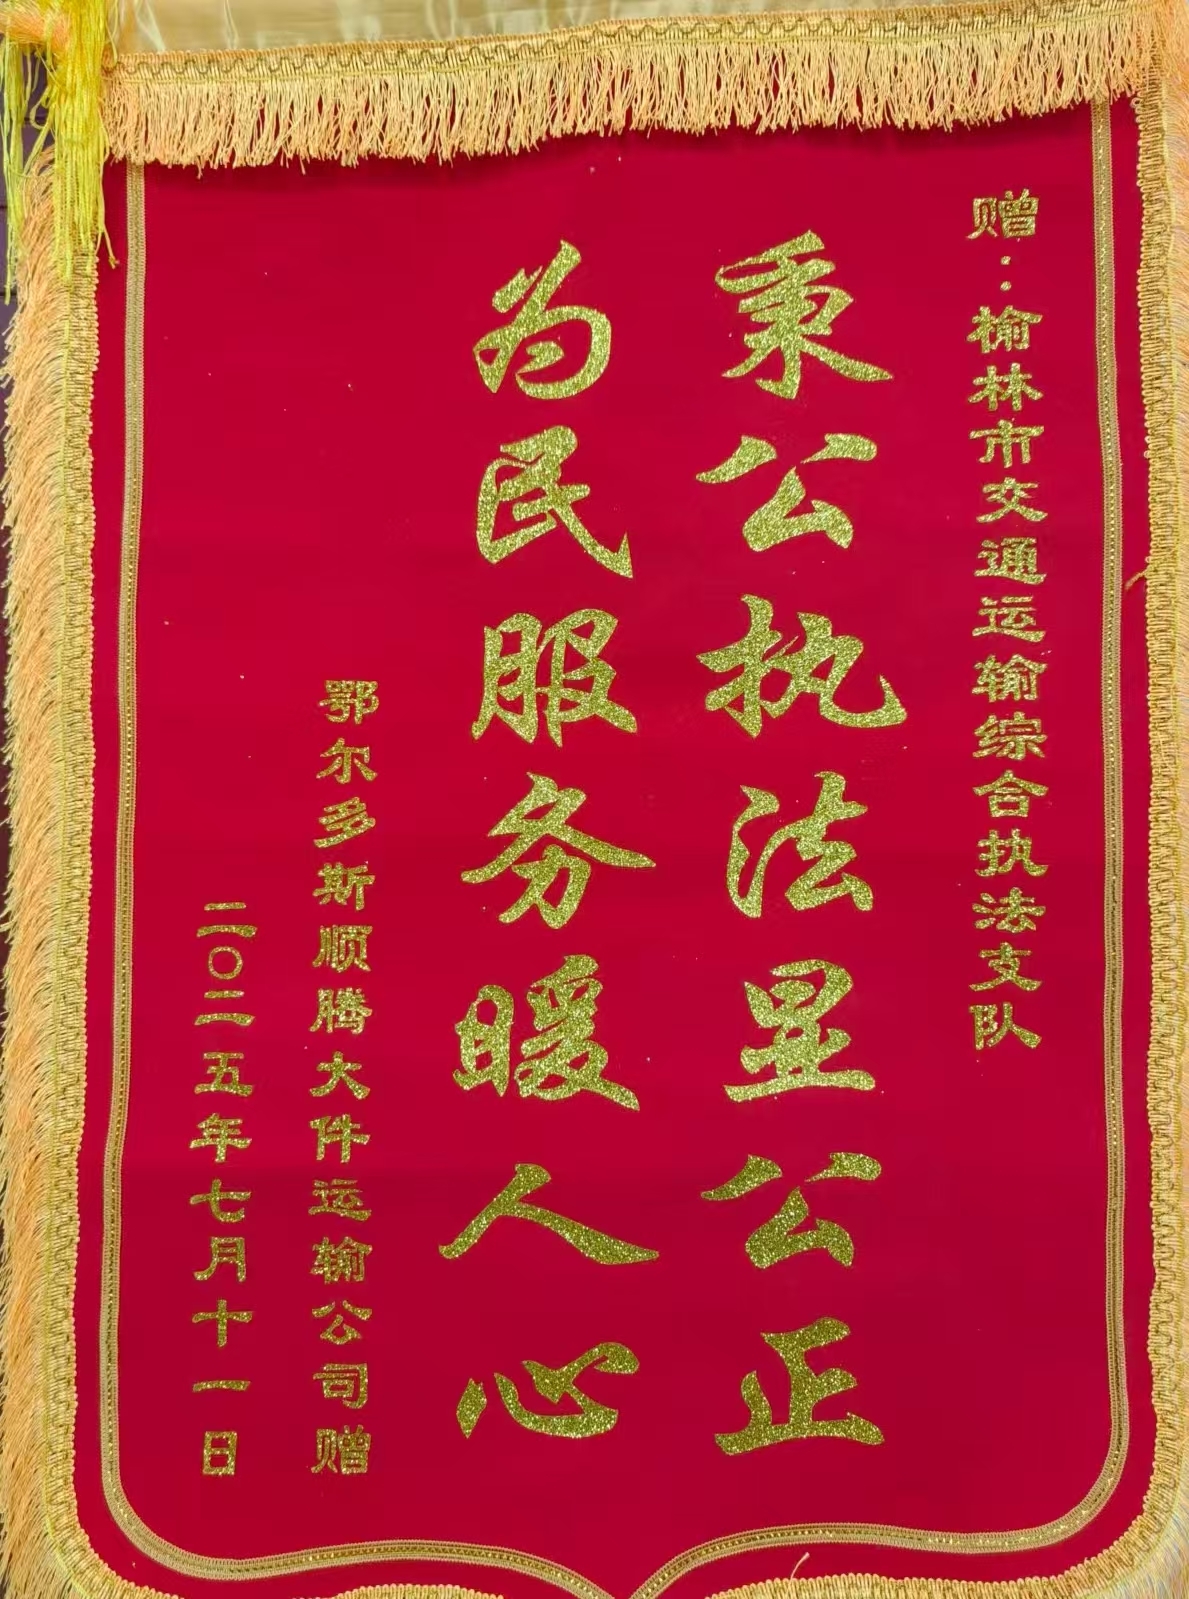 赠：榆林市交通运输综合执法支队
秉公执法显公正
为民服务暖人心
鄂尔多斯顺腾大件运输公司赠
二〇二五年七月十一日